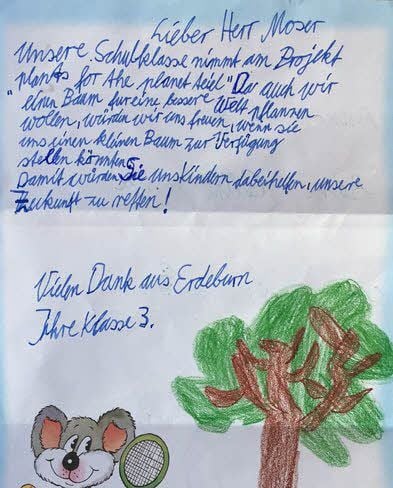 Lieber Herr Moser
Unsere Schulklasse nimmt am Projekt
"plants for the planet teil" Da auch wir
einen Baum für eine bessere Welt pflanzen
wollen, würden wir uns freuen, wenn sie
uns einen kleinen Baum zur Verfügung
stellen könnten.
Damit würden Sie uns Kindern dabei helfen, unsere
Zukunft zu retten!
Vielen Dank aus Erdeburn
Jhre Klasse 3.